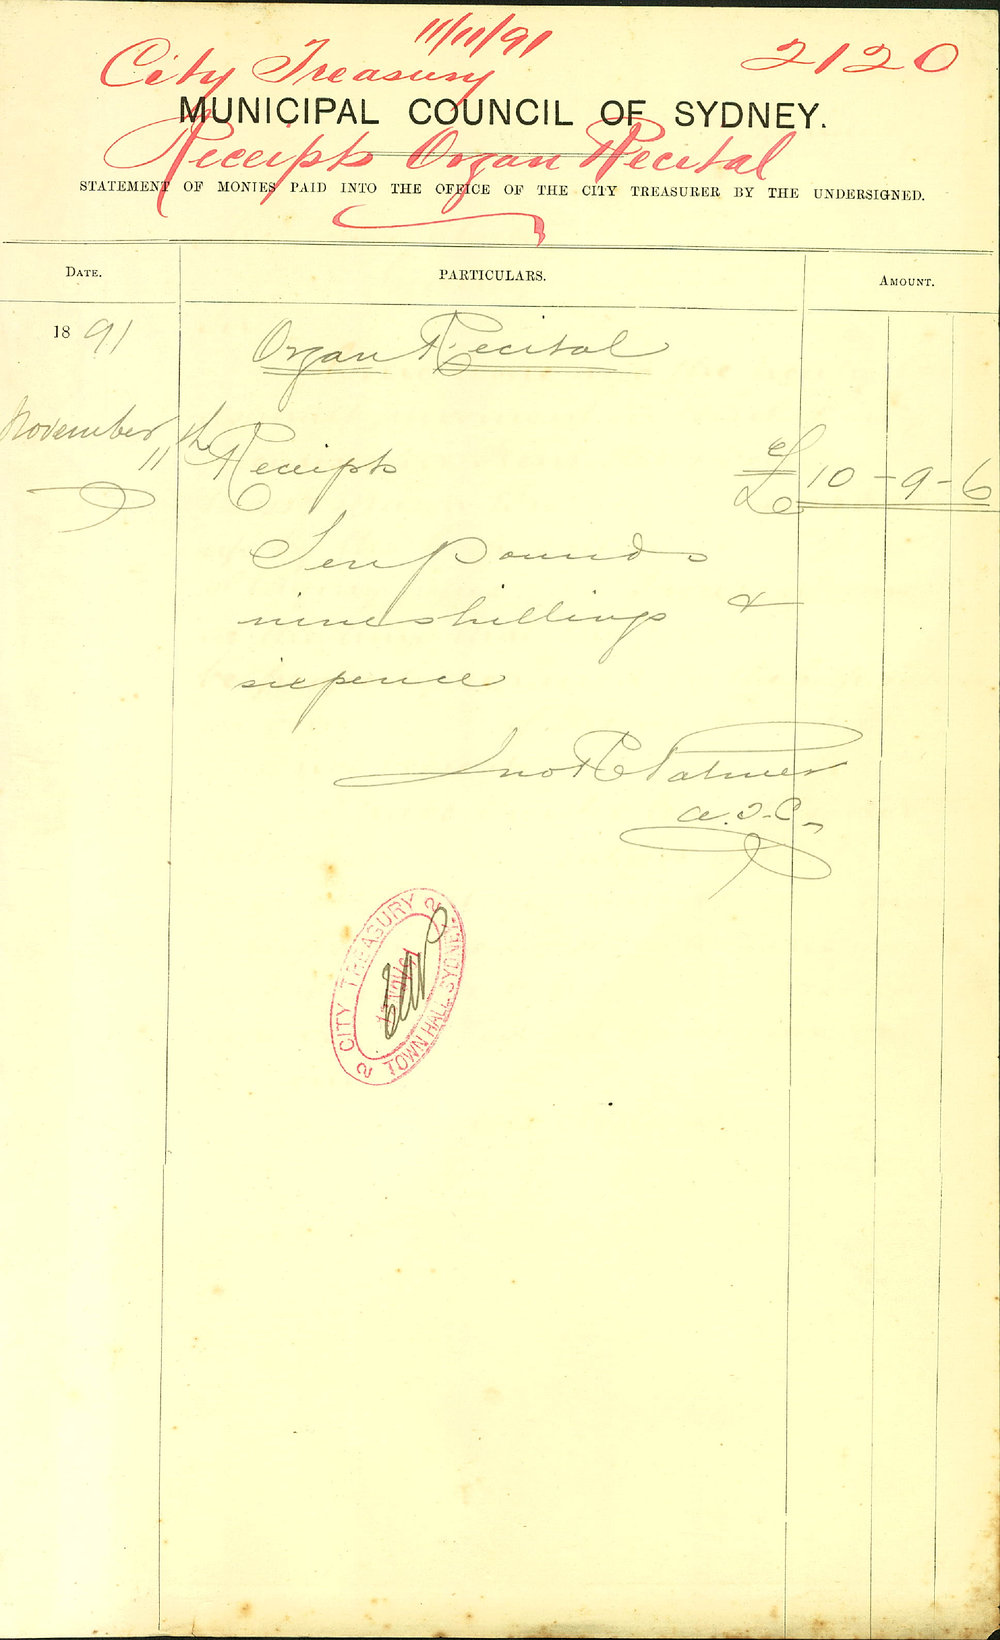 11/11/91
2120
City Treasury
MUNICIPAL COUNCIL OF SYDNEY.
Receipts Organ Recital
STATEMENT OF MONIES PAID INTO THE OFFICE OF THE CITY TREASURER BY THE UNDERSIGNED.
DATE. PARTICULARS. AMOUNT.
1891 Organ Recital
November 11th Receipts £ 10-9-6
Ten Pounds
nine shillings &
sixpence
Jno R Palmer
a.T.C.
2 CITY TREASURY 2
TOWN HALL SYDNEY